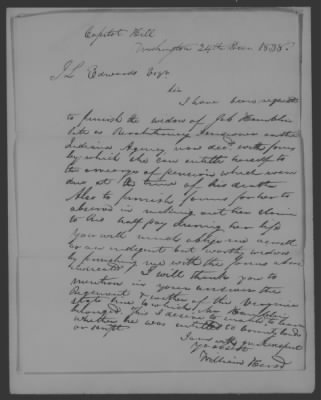 Capitol Hill
Washington 24th 1838
J L Edwards Esqr
Sir
I have been request
to furnish the widow of Job Hamblin
late a Revolutionary on the
Indiana Agency now decd. with forms
by which she can entitle herself to
the arrearages of pension which were
due at the time of his death
Also to furnish forms for her to
observe in making out her claim
to his half pay during her life
You will much oblige me as well
as an indigent but worthy widow
by furnishing me with the forms above
I will thank you to
mention in your answer the
Regiment of the Virginia
State line to which Mr Hamblin
belonged. This I desire to enable to learn
whether he was entitled to bounty lands
or not
I am with much respect
Yr obt St
William Herod